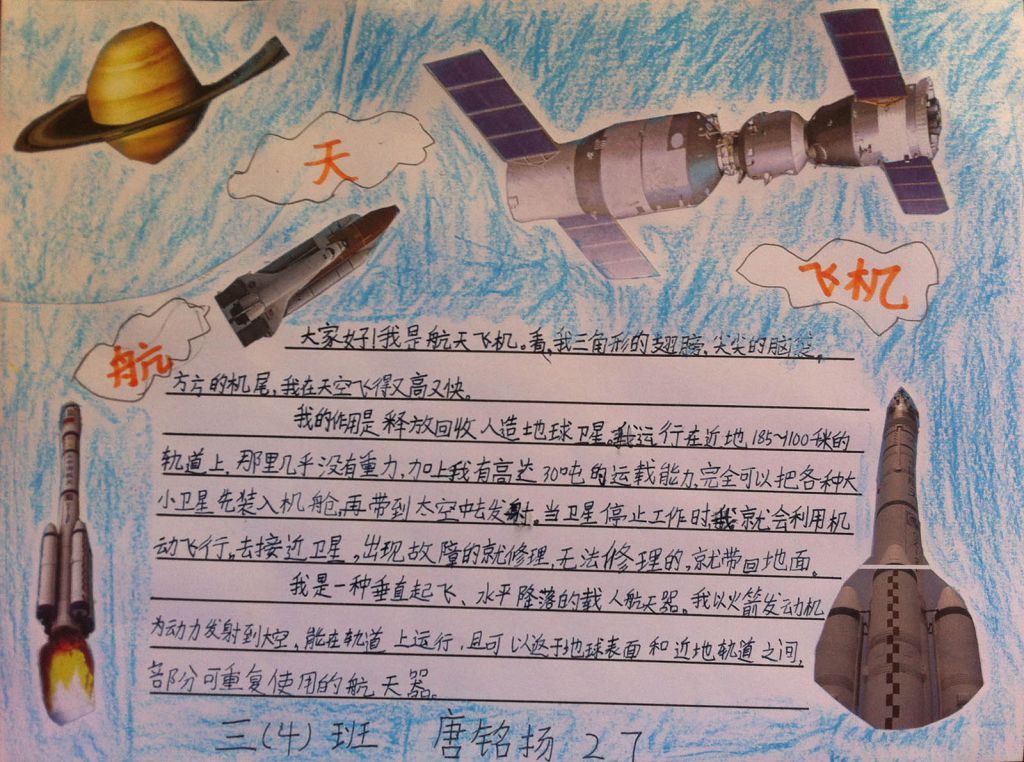 航
天
飞机
大家好!我是航天飞机。看,我三角形的翅膀,尖尖的脑袋,
方方的机尾,我在天空飞得又高又快。
我的作用是释放回收人造地球卫星。我运行在近地,185~1100千米的
轨道上,那里几乎没有重力,加上我有高达30吨的运载能力,完全可以把各种大
小卫星先装入机舱,再带到太空中去发射。当卫星停止工作时我就会利用机
动飞行,去接近卫星,出现故障的就修理,无法修理的,就带回地面。
我是一种垂直起飞、水平降落的载人航天器。我以火箭发动机
为动力发射到太空,能在轨道上运行,且可以返于地球表面和近地轨道之间,
部分可重复使用的航天器。
三(4)班 唐铭扬 27